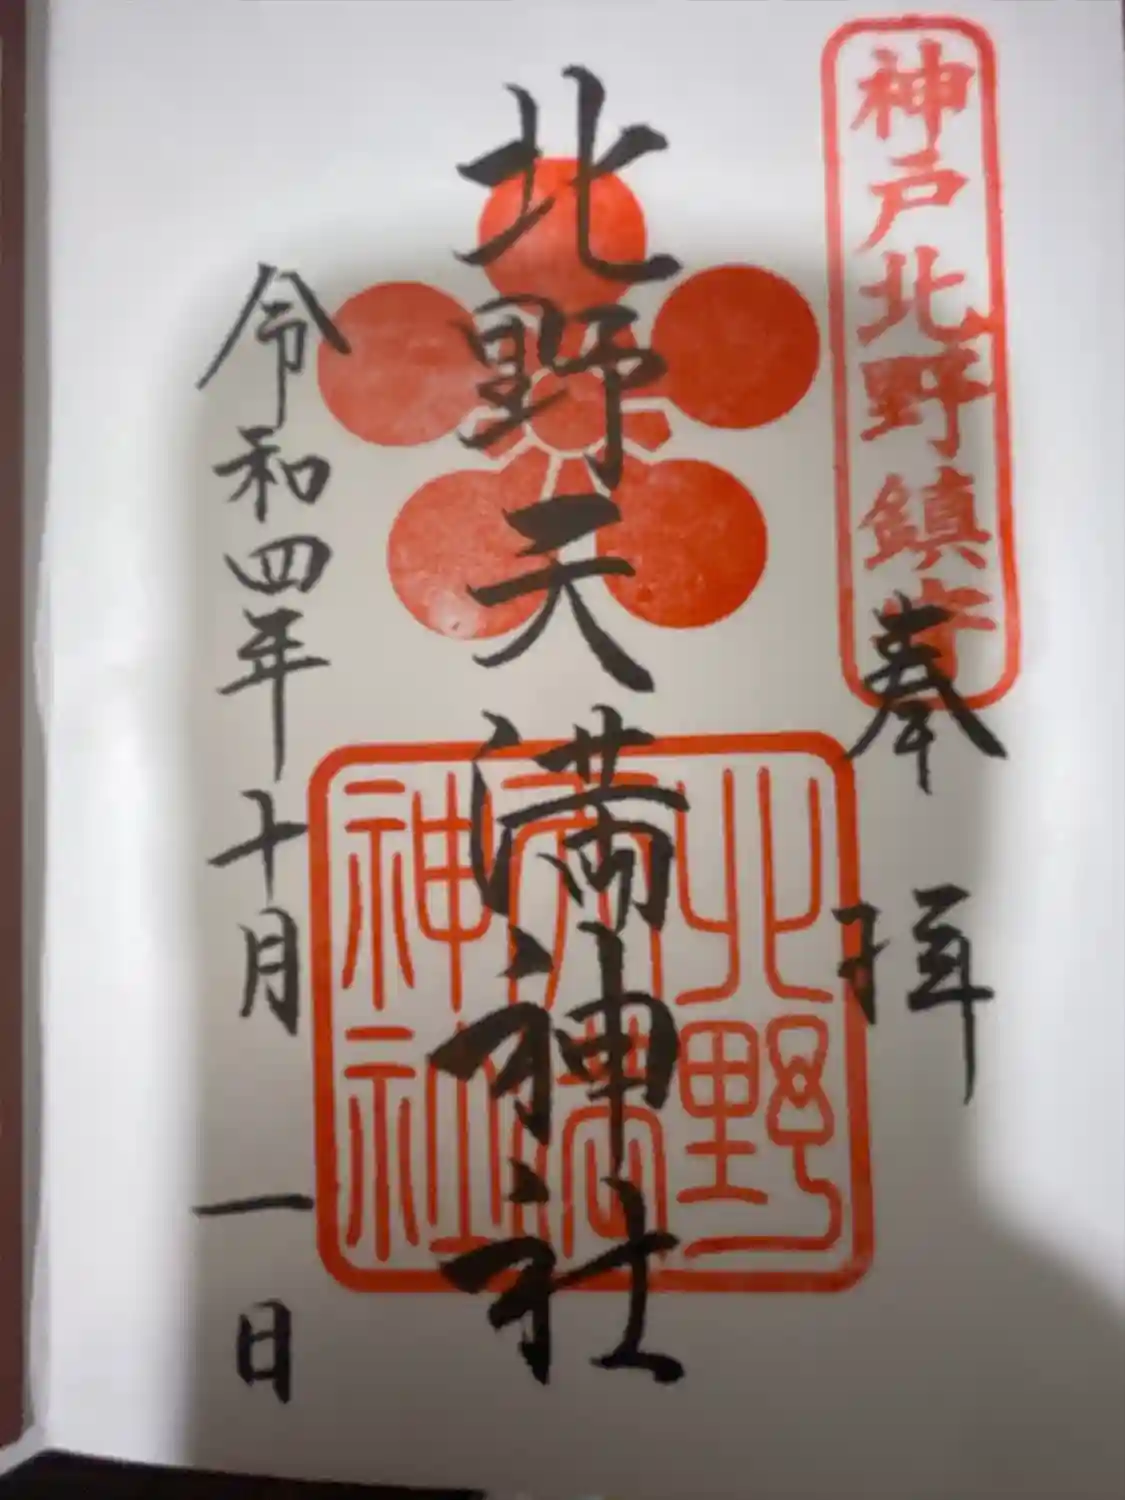 神戸北野鎮守
奉拝
北野天満神社
北野天満神社
令和四年十月一日